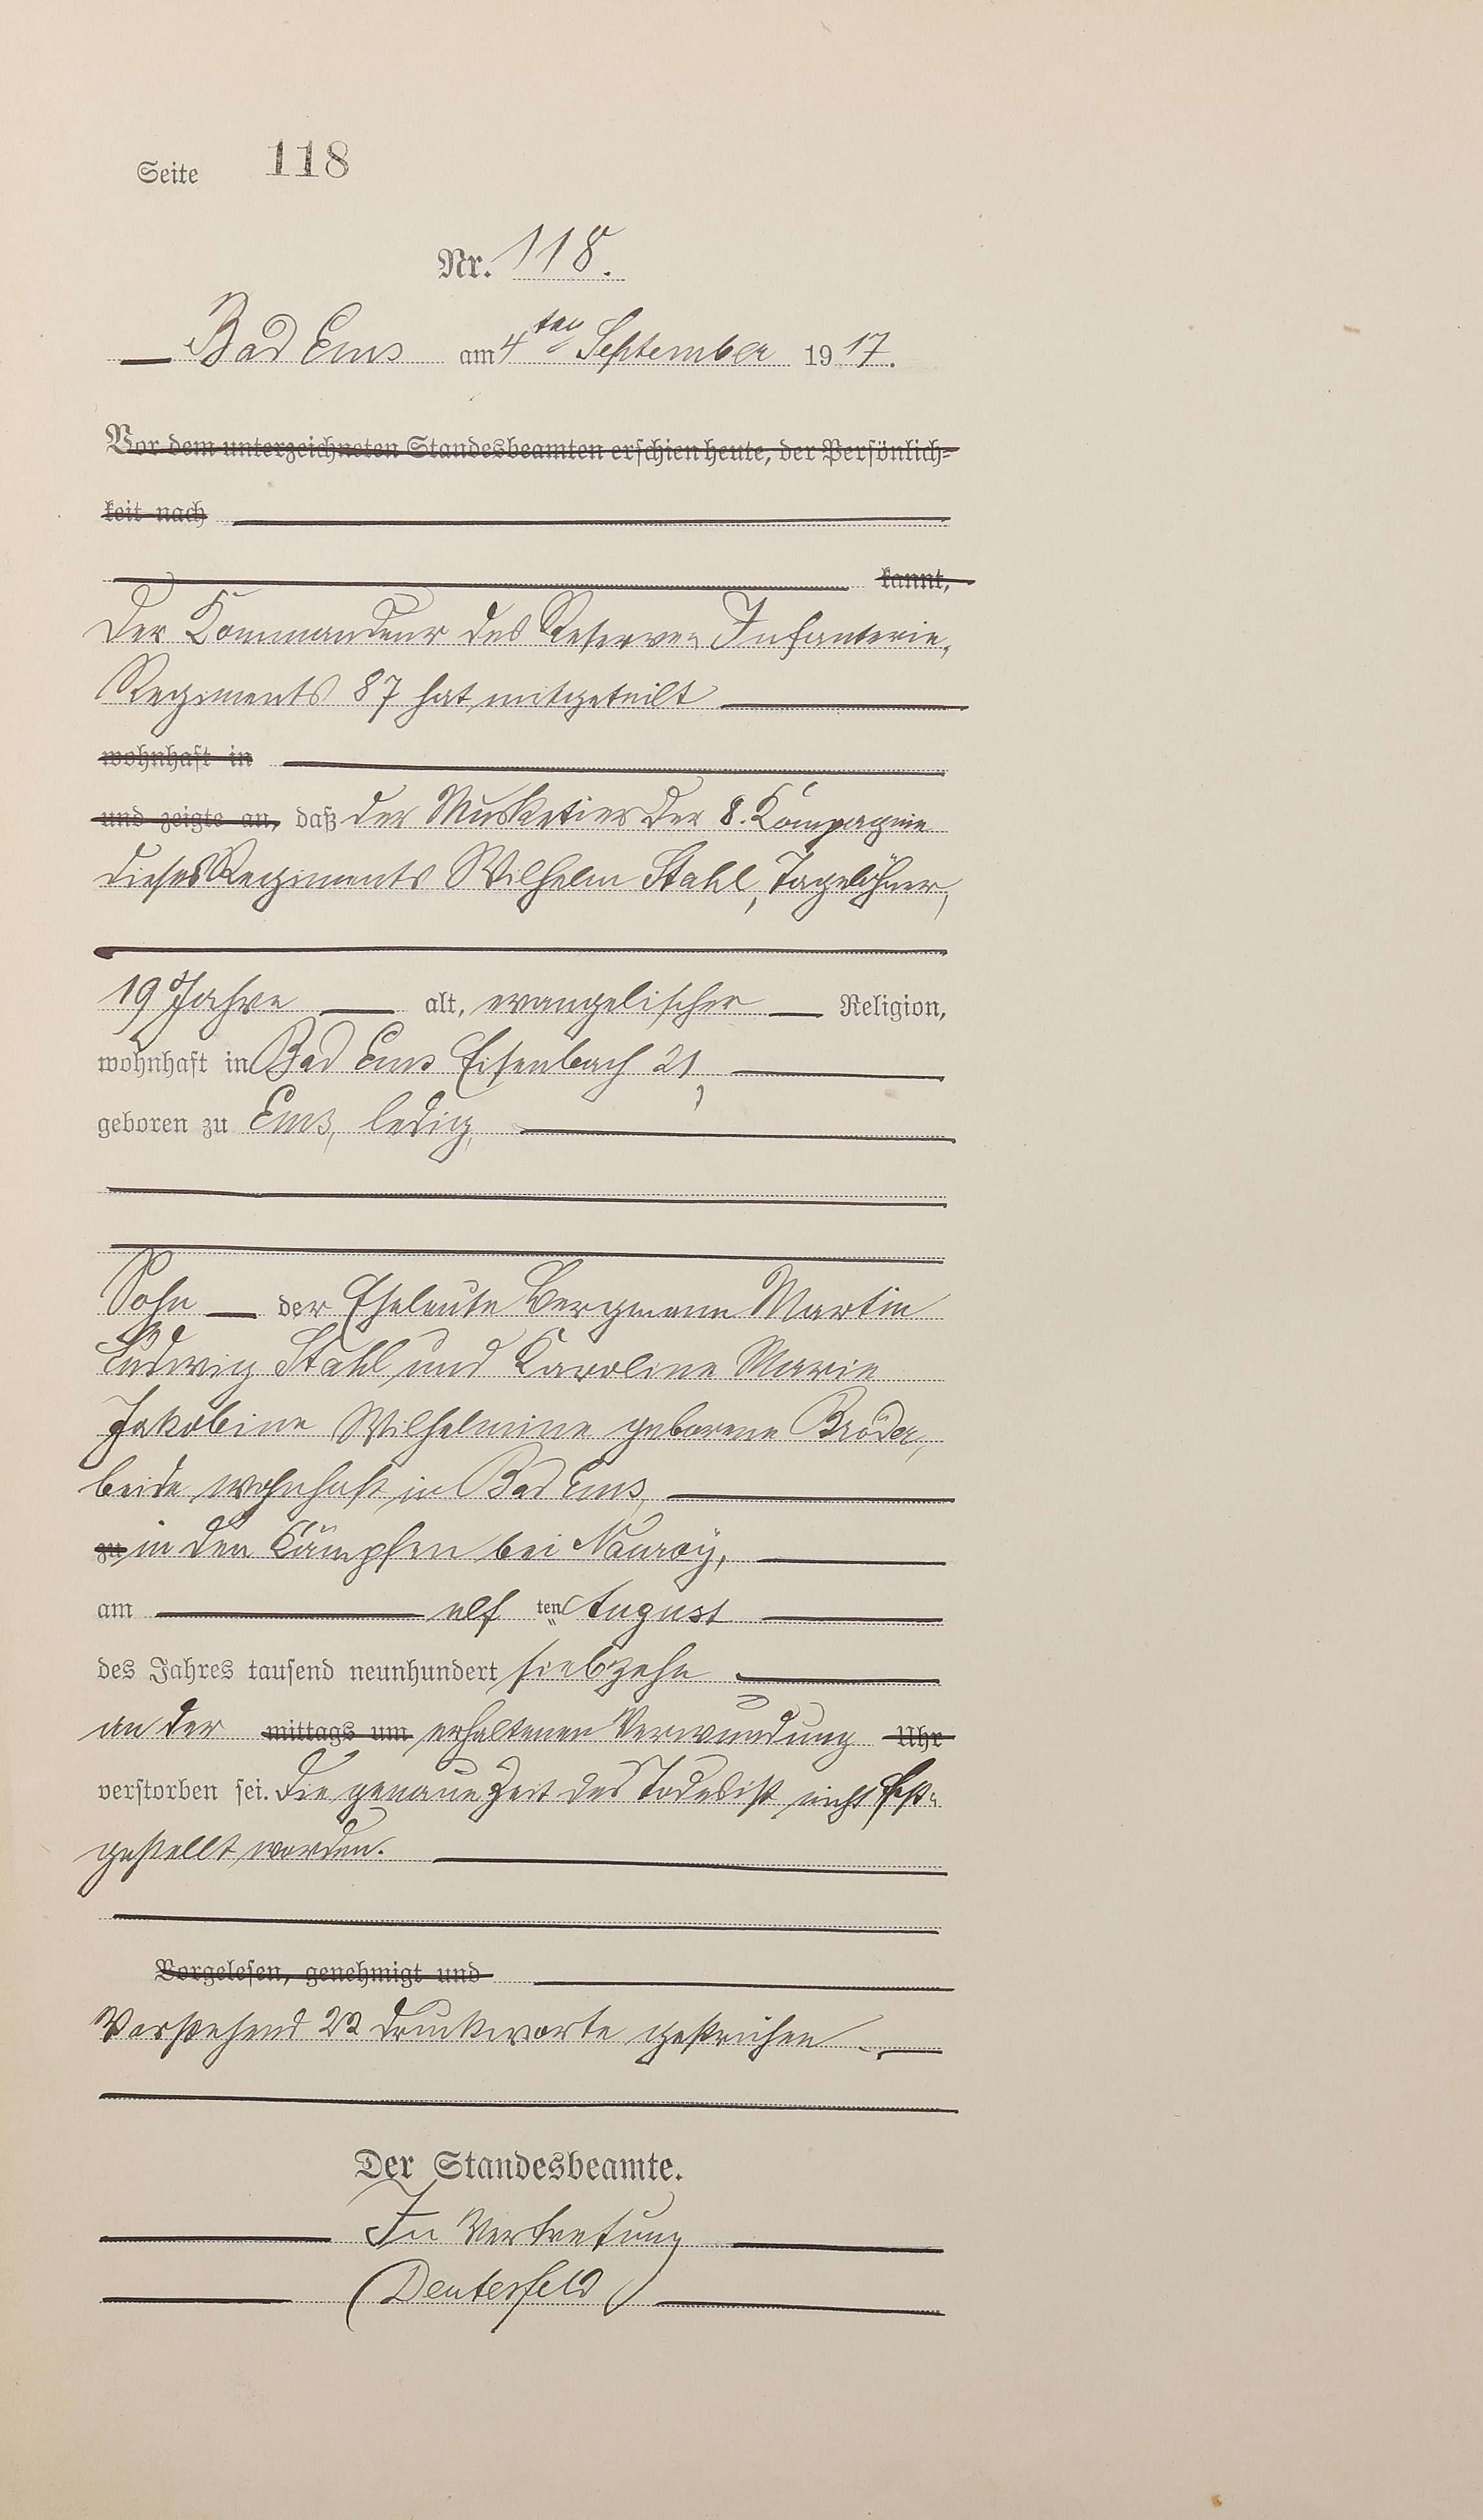 Seite 118
Nr. 118.
Bad Ems am 4ten September 1917.
Vor dem unterzeichneten Standesbeamten erschien heute, der Persönlich=
keit nach
kannt,
Der Kommandeur des Reserve= Infanterie=
Regiments 87 hat mitgeteilt
wohnhaft in
und zeigte an, daß der Musketier der 8. Kompagnie
dieses Regiments Wilhelm Stahl, Tagelöhner,
19 Jahre alt, evangelischer Religion,
wohnhaft in Bad Ems Eisenbach 21,
geboren zu Ems, ledig,
Sohn der Eheleute Bergmann Martin
Ludwig Stahl und Karoline Marie
Jakobine Wilhelmine geborene Bröder,
beide wohnhaft in Bad Ems,
zu in den Kämpfen bei Nauroy,
am elf ten August
des Jahres tausend neunhundert siebzehn
an der mittags um erhaltenen Verwundung Uhr
verstorben sei. Die genaue Zeit des Todes ist nicht fest=
gestellt worden.
Vorgelesen, genehmigt und
Vorstehend 22 Druckworte gestrichen
Der Standesbeamte.
In Vertretung